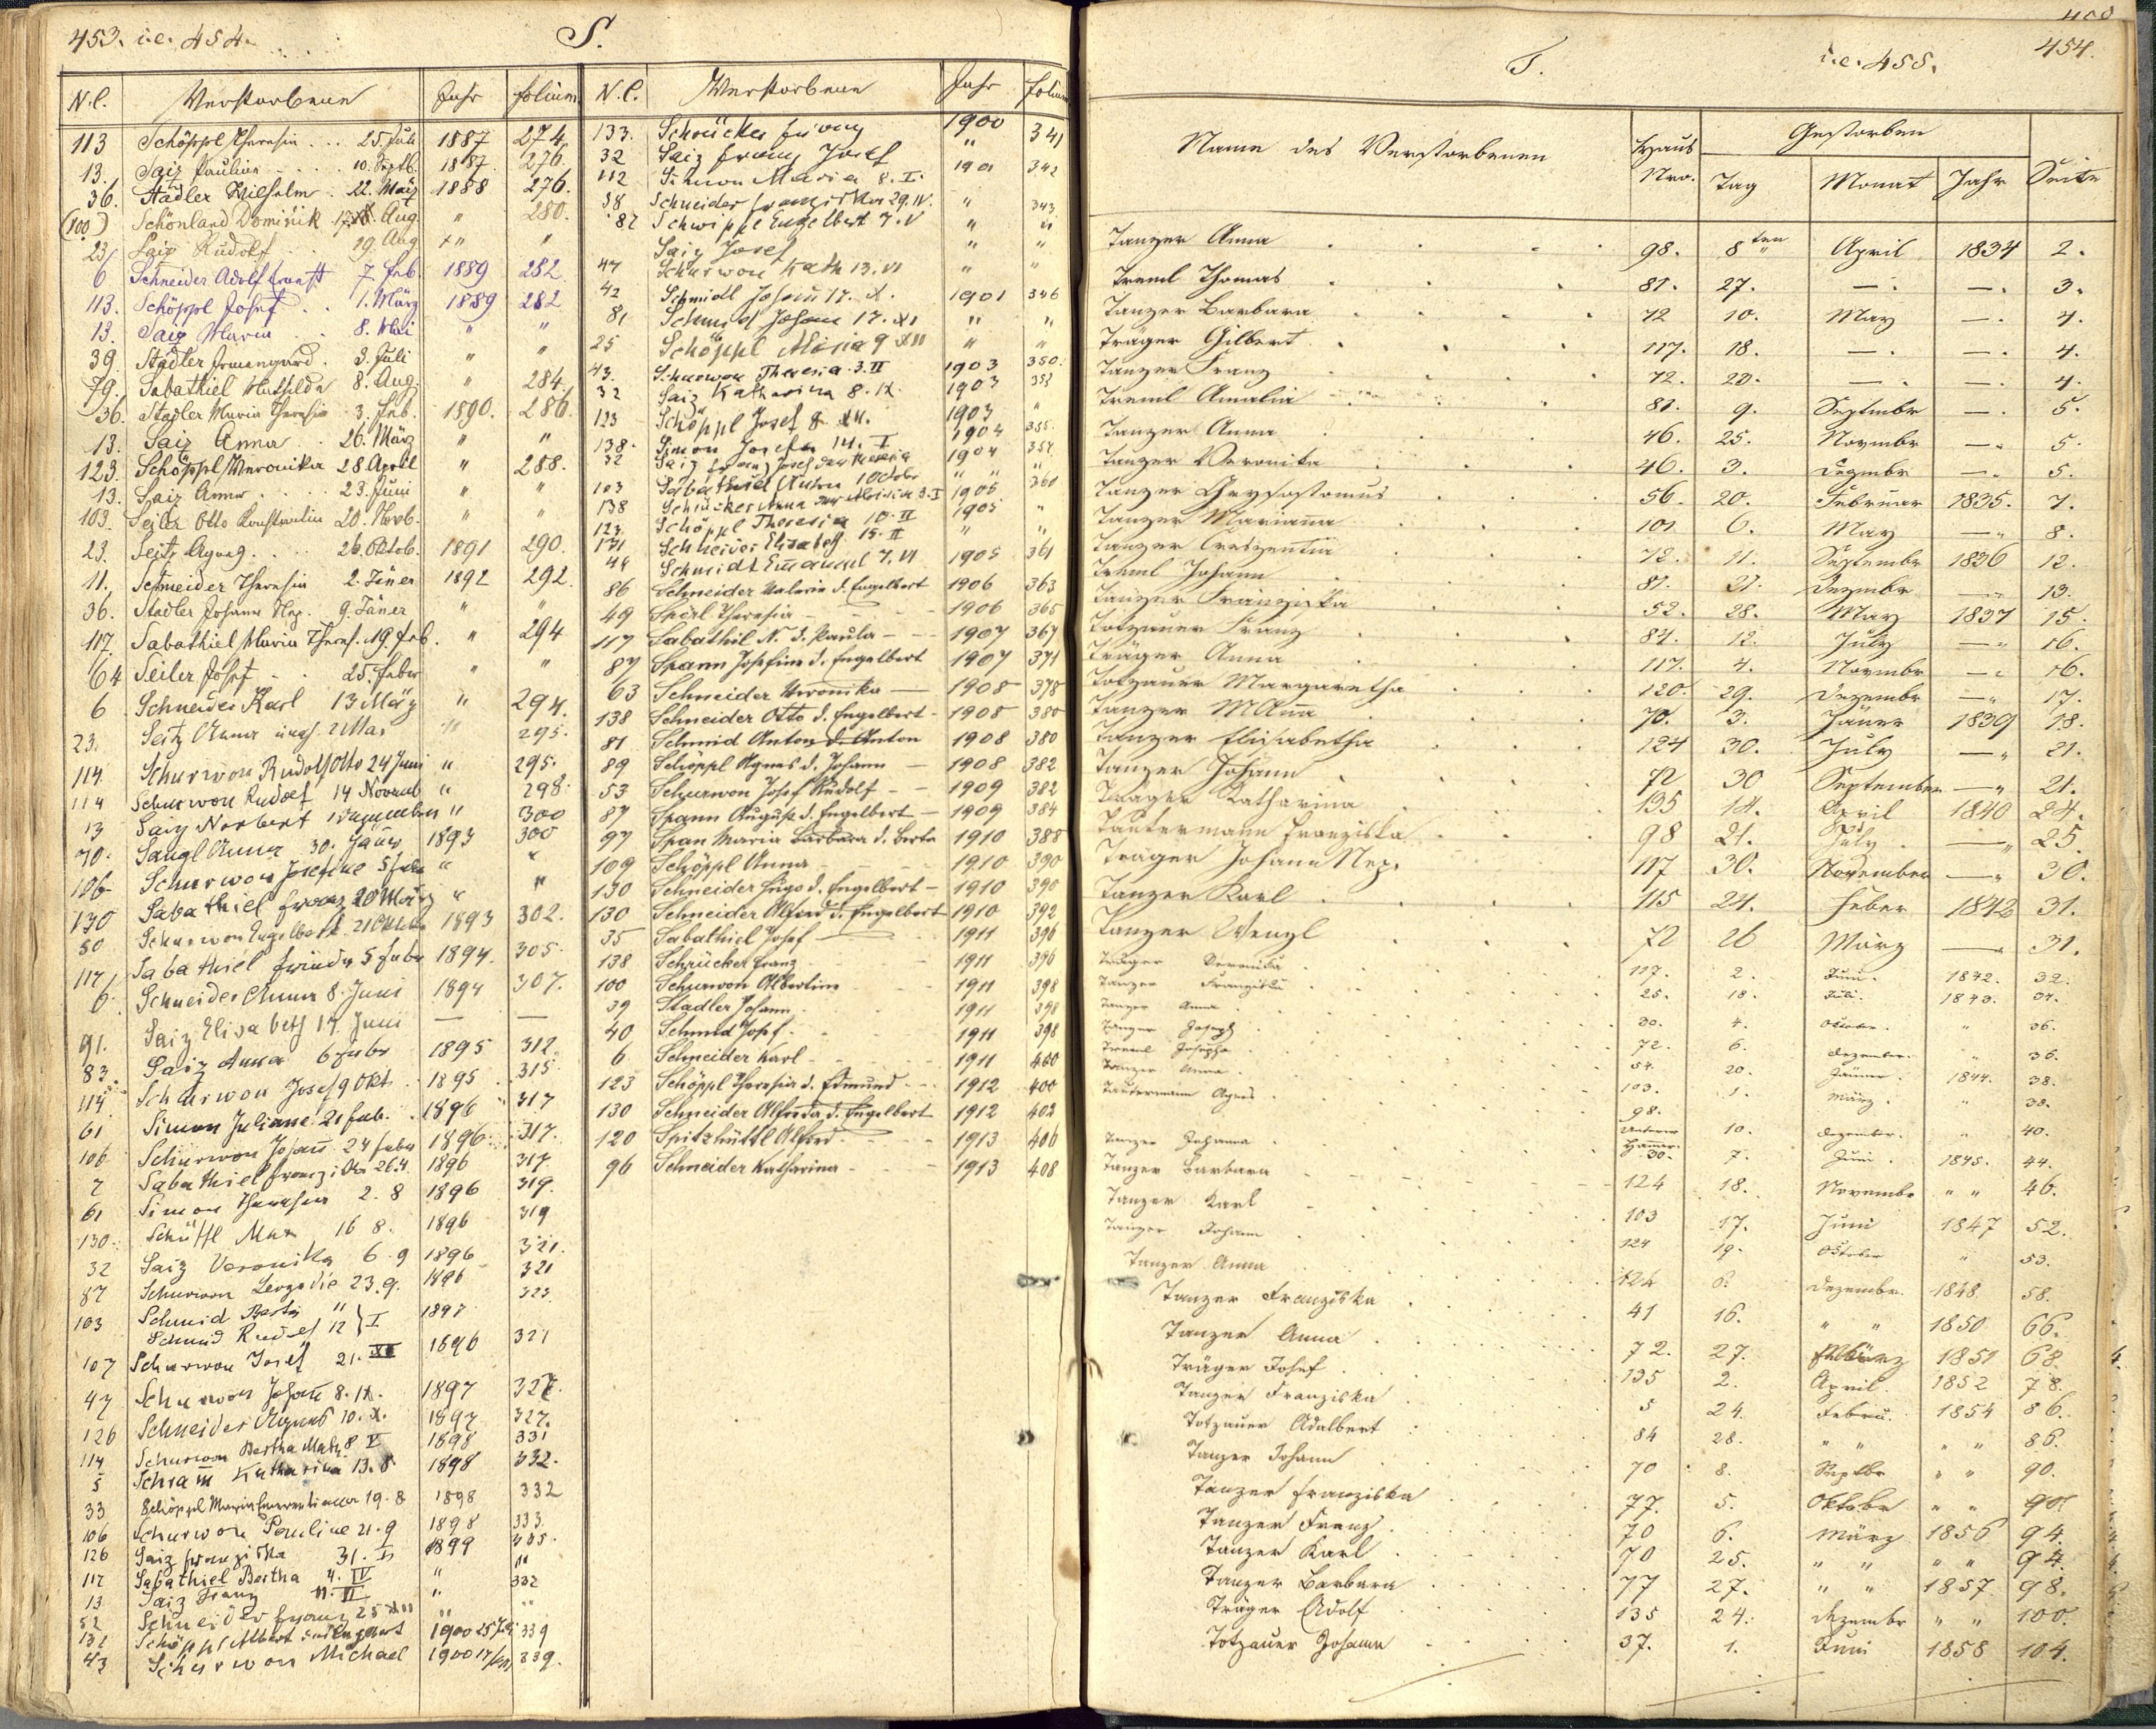 453. i.e. 454.
S.
N.C. Verstorbene Jahr folium
113 Schöppl Theresia ... 25. Juli 1887 274
13. Saiz Pauline .... 10. Septb. 1887. 276.
36. Stadler Wilhelm . 22. März 1888 276.
(100) Schönland Dominik 17. Aug. " 280.
23 Saiz Rudolf .. 19. Aug " "
6 Schneider Adolf Ernst 7. Feb. 1889 282
113. Schöppl Josef .. 1. März 1889 282
13. Saiz Maria .. 8. Mai " "
39. Stadler Irmengard . 3. Juli " "
79. Sabathiel Mathilde 8. Aug. " 284.
36. Stadler Maria Theresia 3. Feb. 1890. 286.
13. Saiz Anna .. 26. März " "
123. Schöppl Veronika 28 April " 288.
13. Saiz Anna .... 23. Juni " "
103. Seiler Otto Konstantin 20. Novb. " "
23. Seitz Agnes. ... 26. Oktob. 1891 290.
11. Schneider Theresia 2. Jäner 1892 292.
36. Stadler Johann Nep. 9. Jäner " "
117. Sabathiel Maria Theres. 19. Feb. " 294
64 Seiler Josef .. 25. Feber " "
6 Schneider Karl 13 März " 294.
23. Seitz Anna 2 Mai " 295.
114 Schurwon Rudolf Otto 24 Juni " 295.
114 Schurwon Rudolf 14 Novemb " 298.
13 Saiz Norbert 1 Dezember " 300
70. Sangl Anna 30. Jäner 1893 300
106 Schurwon Josefine 5 Feber " "
130 Sabathiel Franz 20 März " "
50 Schurwon Engelbert 21 Oktober 1893 302.
117 Sabathiel 5 Feber 1894. 305.
6. Schneider Anna 8. Juni 1894 307.
91. Saiz Elisabeth 14. Juni — —
83. Saiz Anna 6 Feber 1895 312.
114 Schurwon Josef 9 Okt. 1895 315.
61 Simon Juliane 21 Feb. 1896 317
106 Schurwon Johann 24 Feber 1896. 317.
7 Sabathiel Franziska 26.4. 1896 317.
61 Simon Theresia 2. 8 1896 319.
130. Schüttl Max 16 8. 1896 319
32 Saiz Veronika 6. 9 1896 321.
87 Schurwon Leopoldie 23.9. 1896 321
103 Schmid Berta " } I 1897 323
Schmid Rudolf 12
107 Schurwon Josef 21. XII 1896 321
47 Schurwon Johann 8. IX. 1897 327.
126 Schneider Agnes 10. X. 1897 327.
114 Schurwon Bertha 8 V 1898 331
5 Schram Katharina 13. 8 1898 332.
33 Schöppl Maria 19. 8 1898 332
106 Schurwon Pauline 21. 9 1898 333.
126 Saiz Franziska 31. I 1899 335.
117 Sabathiel Bertha 4. IV " "
13 Saiz Franz 11. VI " 332
52 Schneider Franz 25 XII " "
131 Schöppl Albert 1900 339
43 Schurwon Michael 1900 339.
N.C. Verstorbene Jahr folium
133. Schrücker Franz 1900 341
32 Saiz Franz Josef " "
112 Simon Maria 8. I. 1901 342
58 Schneider Franziska 29. IV. " 343
82 Schwippl Engelbert 7. V " "
Saiz Josef " "
47 Schurwon Kath 13. VI " "
42 Schmidt Johann 17. X. 1901 346
81 Schmid Johann 17. XI " "
25 Schöppl Maria 9 XII " "
43. Schurwon Theresia. 3. II 1903 350.
32 Saiz Katharina 8. IX. 1903 353
123 Schöppl Josef 8. XII. 1903 "
138. Simon Josefa 14. I 1904 355.
32 Saiz Franz Josef der Theresia 1904 357.
103 Sabathiel Anton 1 October " "
138 Schrücker Anna der Aloisia 3. I 1905 360
123. Schöppl Theresia 10. II 1905 "
131 Schneider Elisabeth 15. II " "
44 Schmidt Emanuel 7. VI 1905 361
86 Schneider Valerie d. Engelbert 1906 363
49 Sperl Theresia — 1906 365
117 Sabathil N. d. Paula — 1907 367
87 Spann Josefine d. Engelbert 1907 371
63 Schneider Veronika — 1908 378
138 Schneider Otto d. Engelbert - 1908 380
81 Schmid Anton d. Anton 1908 380
89 Schöppl Agnes d. Johann — 1908 382
53 Schurwon Josef Rudolf - - 1909 382
87 Spann August d. Engelbert — 1909 384
97 Span Maria Barbara d. Berta 1910 388
109 Schöppl Anna — 1910 390
130 Schneider Hugo d. Engelbert - 1910 390
130 Schneider Alfred d. Engelbert 1910 392
35 Sabathiel Josef — 1911 396
138 Schrücker Franz 1911 396
100 Schurwon Albertine 1911 398
39 Stadler Johann . 1911 398
40 Schmid Josef . 1911 398
6 Schneider Karl - 1911 400
123 Schöppl Theresia d. Edmund - 1912 400
130 Schneider Alfreda d. Engelbert 1912 402
120 Spitzhüttl Alfred - 1913 406
96 Schneider Katharina - 1913 408
T.
i.e. 455.
454.
Name des Verstorbenen Haus Nro. Gestorben Tag Monat Jahr Seite
Tanzer Anna 98. 8ten April 1834 2.
Treml Thomas 81. 27. —. —. 3.
Tanzer Barbara 72 10. May —. 4.
Träger Gilbert 117. 18. —. —. 4.
Tanzer Franz 72. 20. —. —. 4.
Treml Amalia 81. 9. Septembr —. 5.
Tanzer Anna 46. 25. Novembr —. 5.
Tanzer Veronika 46. 3. Dezembr —. 5.
Tanzer Chrysostomus 56. 20. Februar 1835. 7.
Tanzer Marianna 101 6. May —" 8.
Tanzer Creszentia 72. 11. Septembr 1836 12.
Treml Johann 81. 21. Dezembr —" 13.
Tanzer Franziska 52. 28. May 1837 15.
Totzauer Franz 84. 12. July —" 16.
Träger Anna 117. 4. Novembr —" 16.
Totzauer Margaretha 120. 29. Dezembr —" 17.
Tanzer MAnna 70. 3. Jäner 1839 18.
Tanzer Elisabetha 124 30. July —" 21.
Tanzer Johann 72 30 September —" 21.
Träger Katharina 135 14. April 1840 24.
Tautermann Franziska 98 21. July —" 25.
Träger Johann Nep. 117 30. November —" 30.
Tanzer Karl 115 24. Feber 1842 31.
Tanzer Wenzl 72 26 März —" 31.
Träger Veronika 117. 2. Juni. 1842. 32.
Tanzer Franziska 25. 18. Juli. 1843. 34.
Tanzer Anna 30. 4. October. " 36.
Tanzer Joseph 72. 6. Dezember. " 36.
Treml Josepha 54. 20. Jänner. 1844. 38.
Tanzer Anna 103. 1. März. " 38.
Tautermann Agnes 98. 10. Dezember. " 40.
Tanzer Johanna Unterer Hammer 30. 7. Juni. 1845. 44.
Tanzer Barbara 124 18. Novembr " " 46.
Tanzer Karl 103 17. Juni 1847 52.
Tanzer Johann 124 19. October " 53.
Tanzer Anna 124 6. Dezembr. 1848 58.
Tanzer Franziska 41 16. " " 1850 66.
Tanzer Anna 72. 27. März 1851 68.
Träger Josef 135 2. April. 1852 78.
Tanzer Franziska 5 24. Febru. 1854 86.
Totzauer Adalbert 84 28. " " " " 86.
Tanzer Johann 70 8. Septbr " " 90.
Tanzer Franziska 77. 5. Oktobr " " 90.
Tanzer Franz 70 6. März 1856 94.
Tanzer Karl 70 25. " " " " 94.
Tanzer Barbara 77 27. " " 1857 98.
Träger Adolf 135 24. Dezembr " " 100.
Totzauer Johann 37. 1. Juni 1858 104.